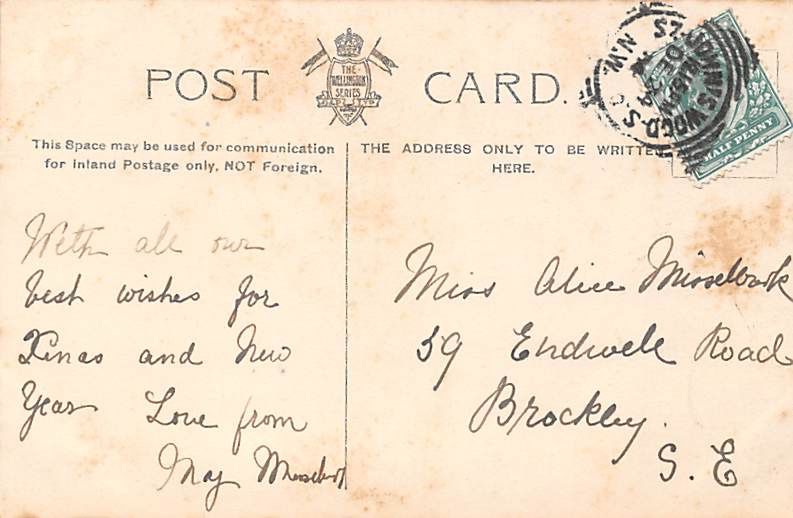 POST CARD.
THE
WELLINGTON
SERIES
This Space may be used for communication
for Inland Postage only, NOT Foreign.
THE ADDRESS ONLY TO BE WRITTEN
HERE.
HALF PENNY
N.W.
With all our
best wishes for
Xmas and New
Year Love from
May
Miss Alice Misselbrook
59 Endwell Road
Brockley.
S.E